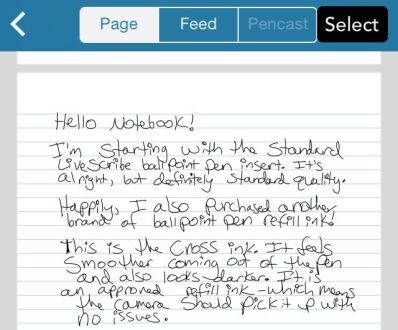 Page Feed Pencast Select
Hello Notebook!
I'm Starting with the Standard
LiveScribe ball point pen insert. It's
alright, but definitely standard quality.
Happily, I also Purchased another
brand of ballpoint pen refill ink!
This is the Cross ink. It feels
Smoother coming out of the pen
and also looks darker. It is
an approved refill ink - which means
the camera should pick it up with
no issues.